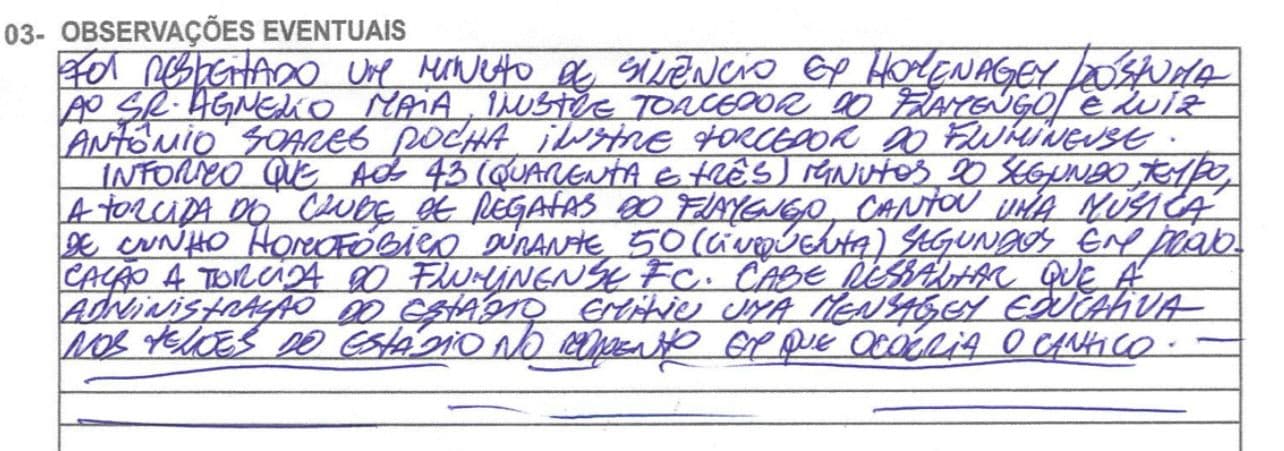 03- OBSERVAÇÕES EVENTUAIS
FOI RESPEITADO UM MINUTO DE SILÊNCIO EM HOMENAGEM PÓSTUMA
AO SR. AGNELIO MAIA, ILUSTRE TORCEDOR DO FLAMENGO E LUIZ
ANTÔNIO SOARES ROCHA, ILUSTRE TORCEDOR DO FLUMINENSE.
INFORMO QUE AOS 43 (QUARENTA E TRÊS) MINUTOS DO SEGUNDO TEMPO,
A TORCIDA DO CLUBE DE REGATAS DO FLAMENGO, CANTOU UMA MÚSICA
DE CUNHO HOMOFÓBICO DURANTE 50 (CINQÜENTA) SEGUNDOS EM PROVO-
CAÇÃO A TORCIDA DO FLUMINENSE FC. CABE RESSALTAR QUE A
ADMINISTRAÇÃO DO ESTÁDIO EMITIU UMA MENSAGEM EDUCATIVA
NOS TELÕES DO ESTÁDIO NO MOMENTO EM QUE OCORRIA O CANTICO.